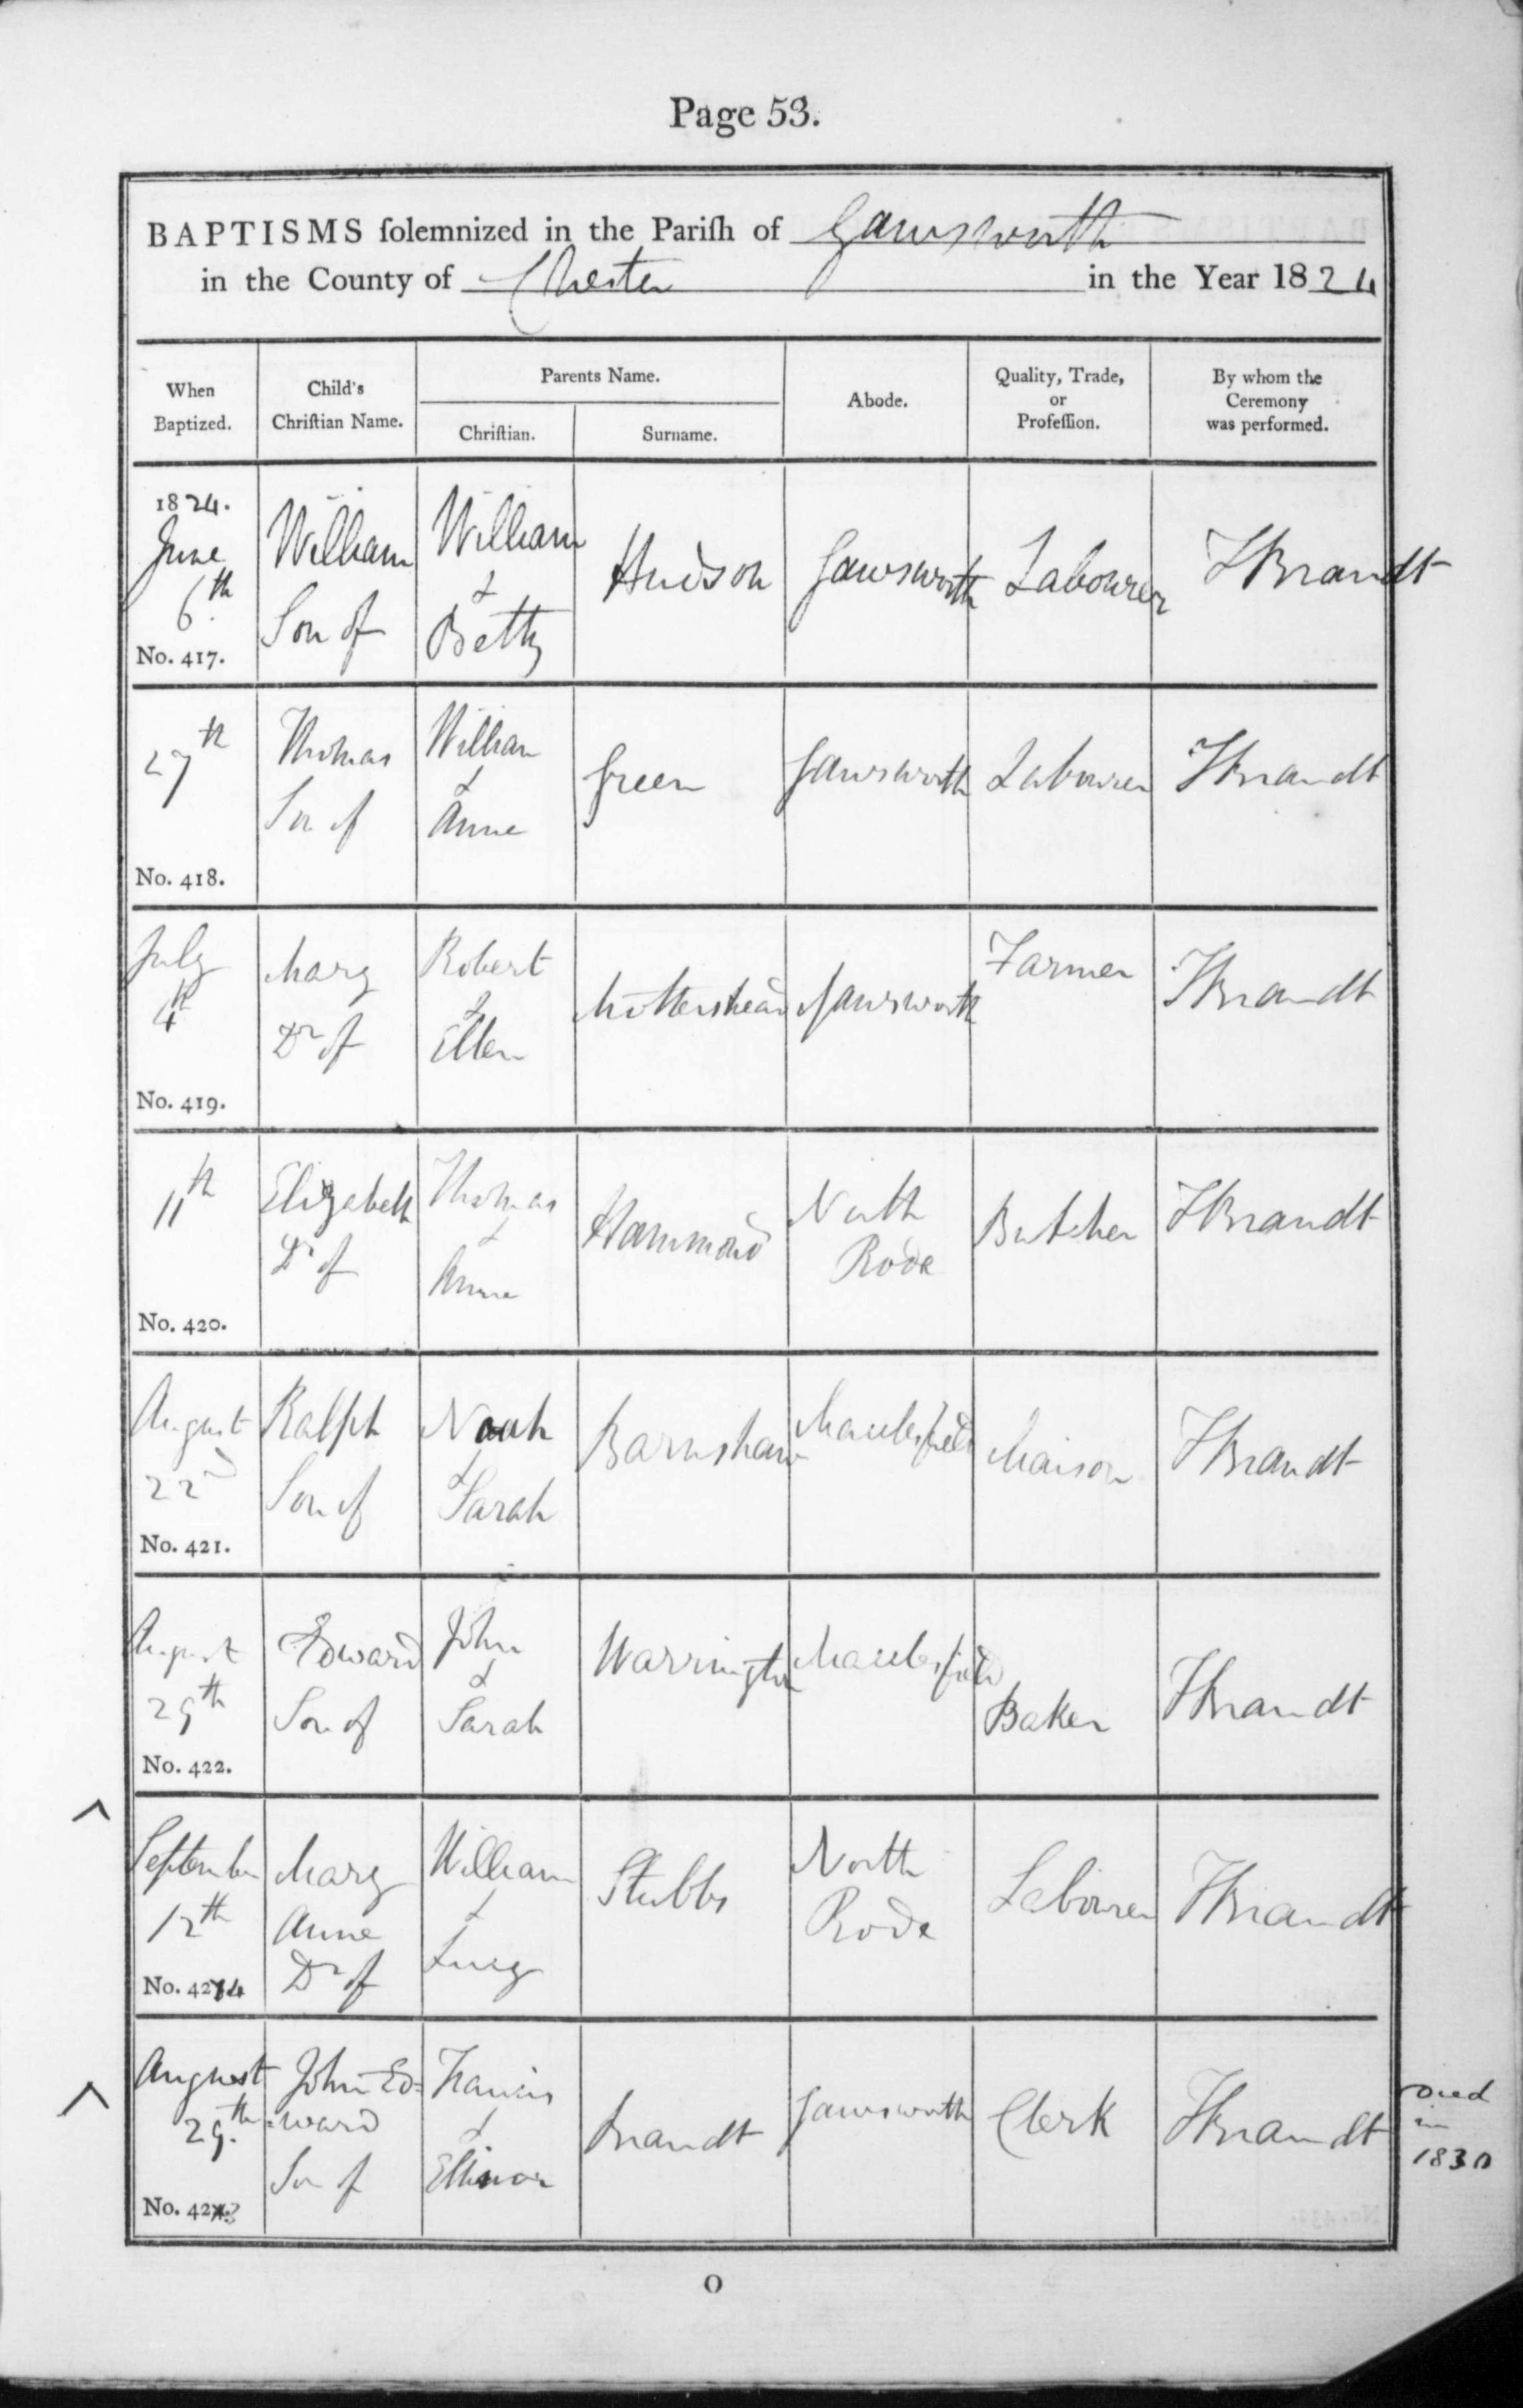 Page 53.
BAPTISMS ſolemnized in the Pariſh of Gawsworth
in the County of Chester in the Year 1824
When
Baptized.
Child's
Chriſtian Name.
Parents Name.
Chriſtian.
Surname.
Abode.
Quality, Trade,
or
Profeſſion.
By whom the
Ceremony
was performed.
1824.
June
6th
No. 417.
William
Son of
William
&
Betty
Hudson
Gawsworth
Labourer
FBrandt
27th
No. 418.
Thomas
Son of
William
&
Anne
Green
Gawsworth
Labourer
FBrandt
July
4th
No. 419.
Mary
Dr of
Robert
&
Ellen
Mottershead
Gawsworth
Farmer
FBrandt
11th
No. 420.
Elizabeth
Dr of
Thomas
&
Anne
Hammond
North
Rode
Butcher
FBrandt
August
22d
No. 421.
Ralph
Son of
Noah
&
Sarah
Barnshaw
Macclesfield
Maison
FBrandt
August
29th
No. 422.
Edward
Son of
John
&
Sarah
Warrington
Macclesfield
Baker
FBrandt
September
12th
No. 424
Mary
Anne
Dr of
William
&
Lucy
Stubbs
North
Rode
Labourer
FBrandt
August
29.th
No. 423
John Ed=
=ward
Son of
Francis
&
Ellinor
Brandt
Gawsworth
Clerk
FBrandt
Died
in
1830
O